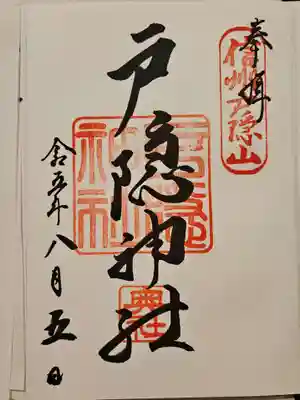 奉拝
信州戸隠山
戸隠神社
奥社
令和五年八月五日